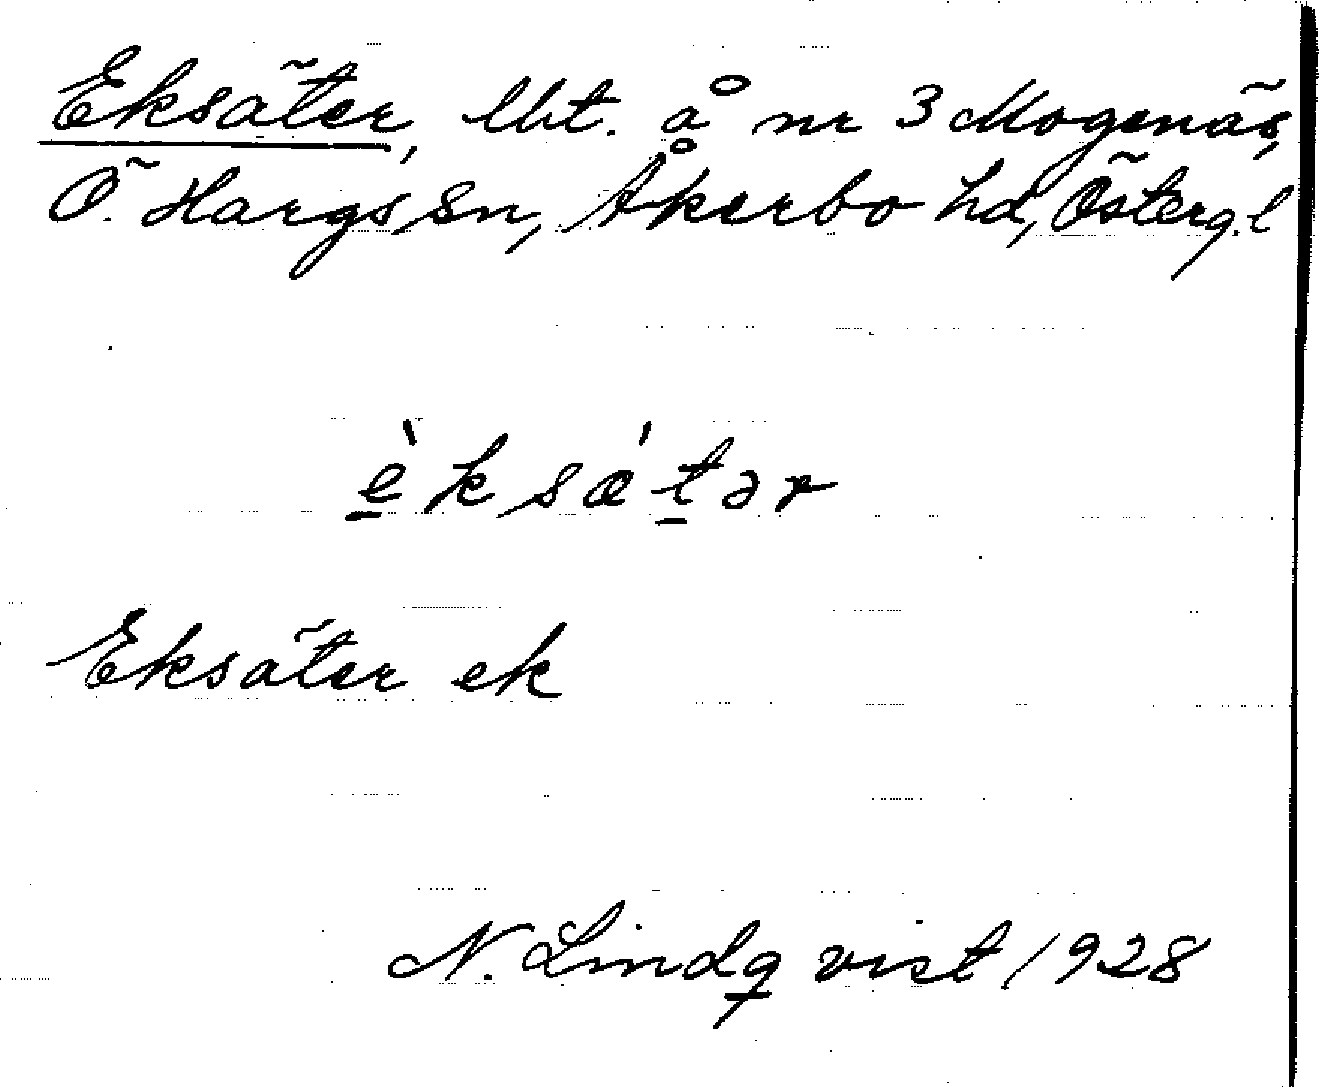 Eksäter, lht. å nr 3 Mogenäs,
Ö. Hargs sn, Åkerbo hd, Österg. l
è̠ksæ´t̠ər
Eksäter ek
N. Lindqvist 1928